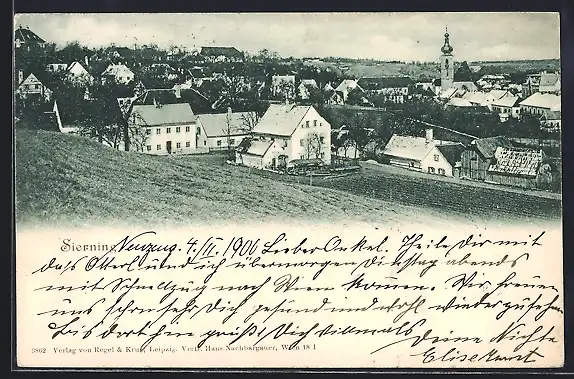 Sierning, Neuzug. 4./II. 1900 Lieber Onkel. Theile Dir mit
daß Otterl und ich übermorgen Dienstag abends
mit Schnellzug nach Wien komen. Wir freuen
uns schon sehr Dich gesund und wohl wiederzusehen
Bis dorthin grüßt Dich vielmals Deine Nichte
3862 Verlag von Regel & Krug, Leipzig. Vertr. Hans Nachbargauer, Wien 18 I
Elise